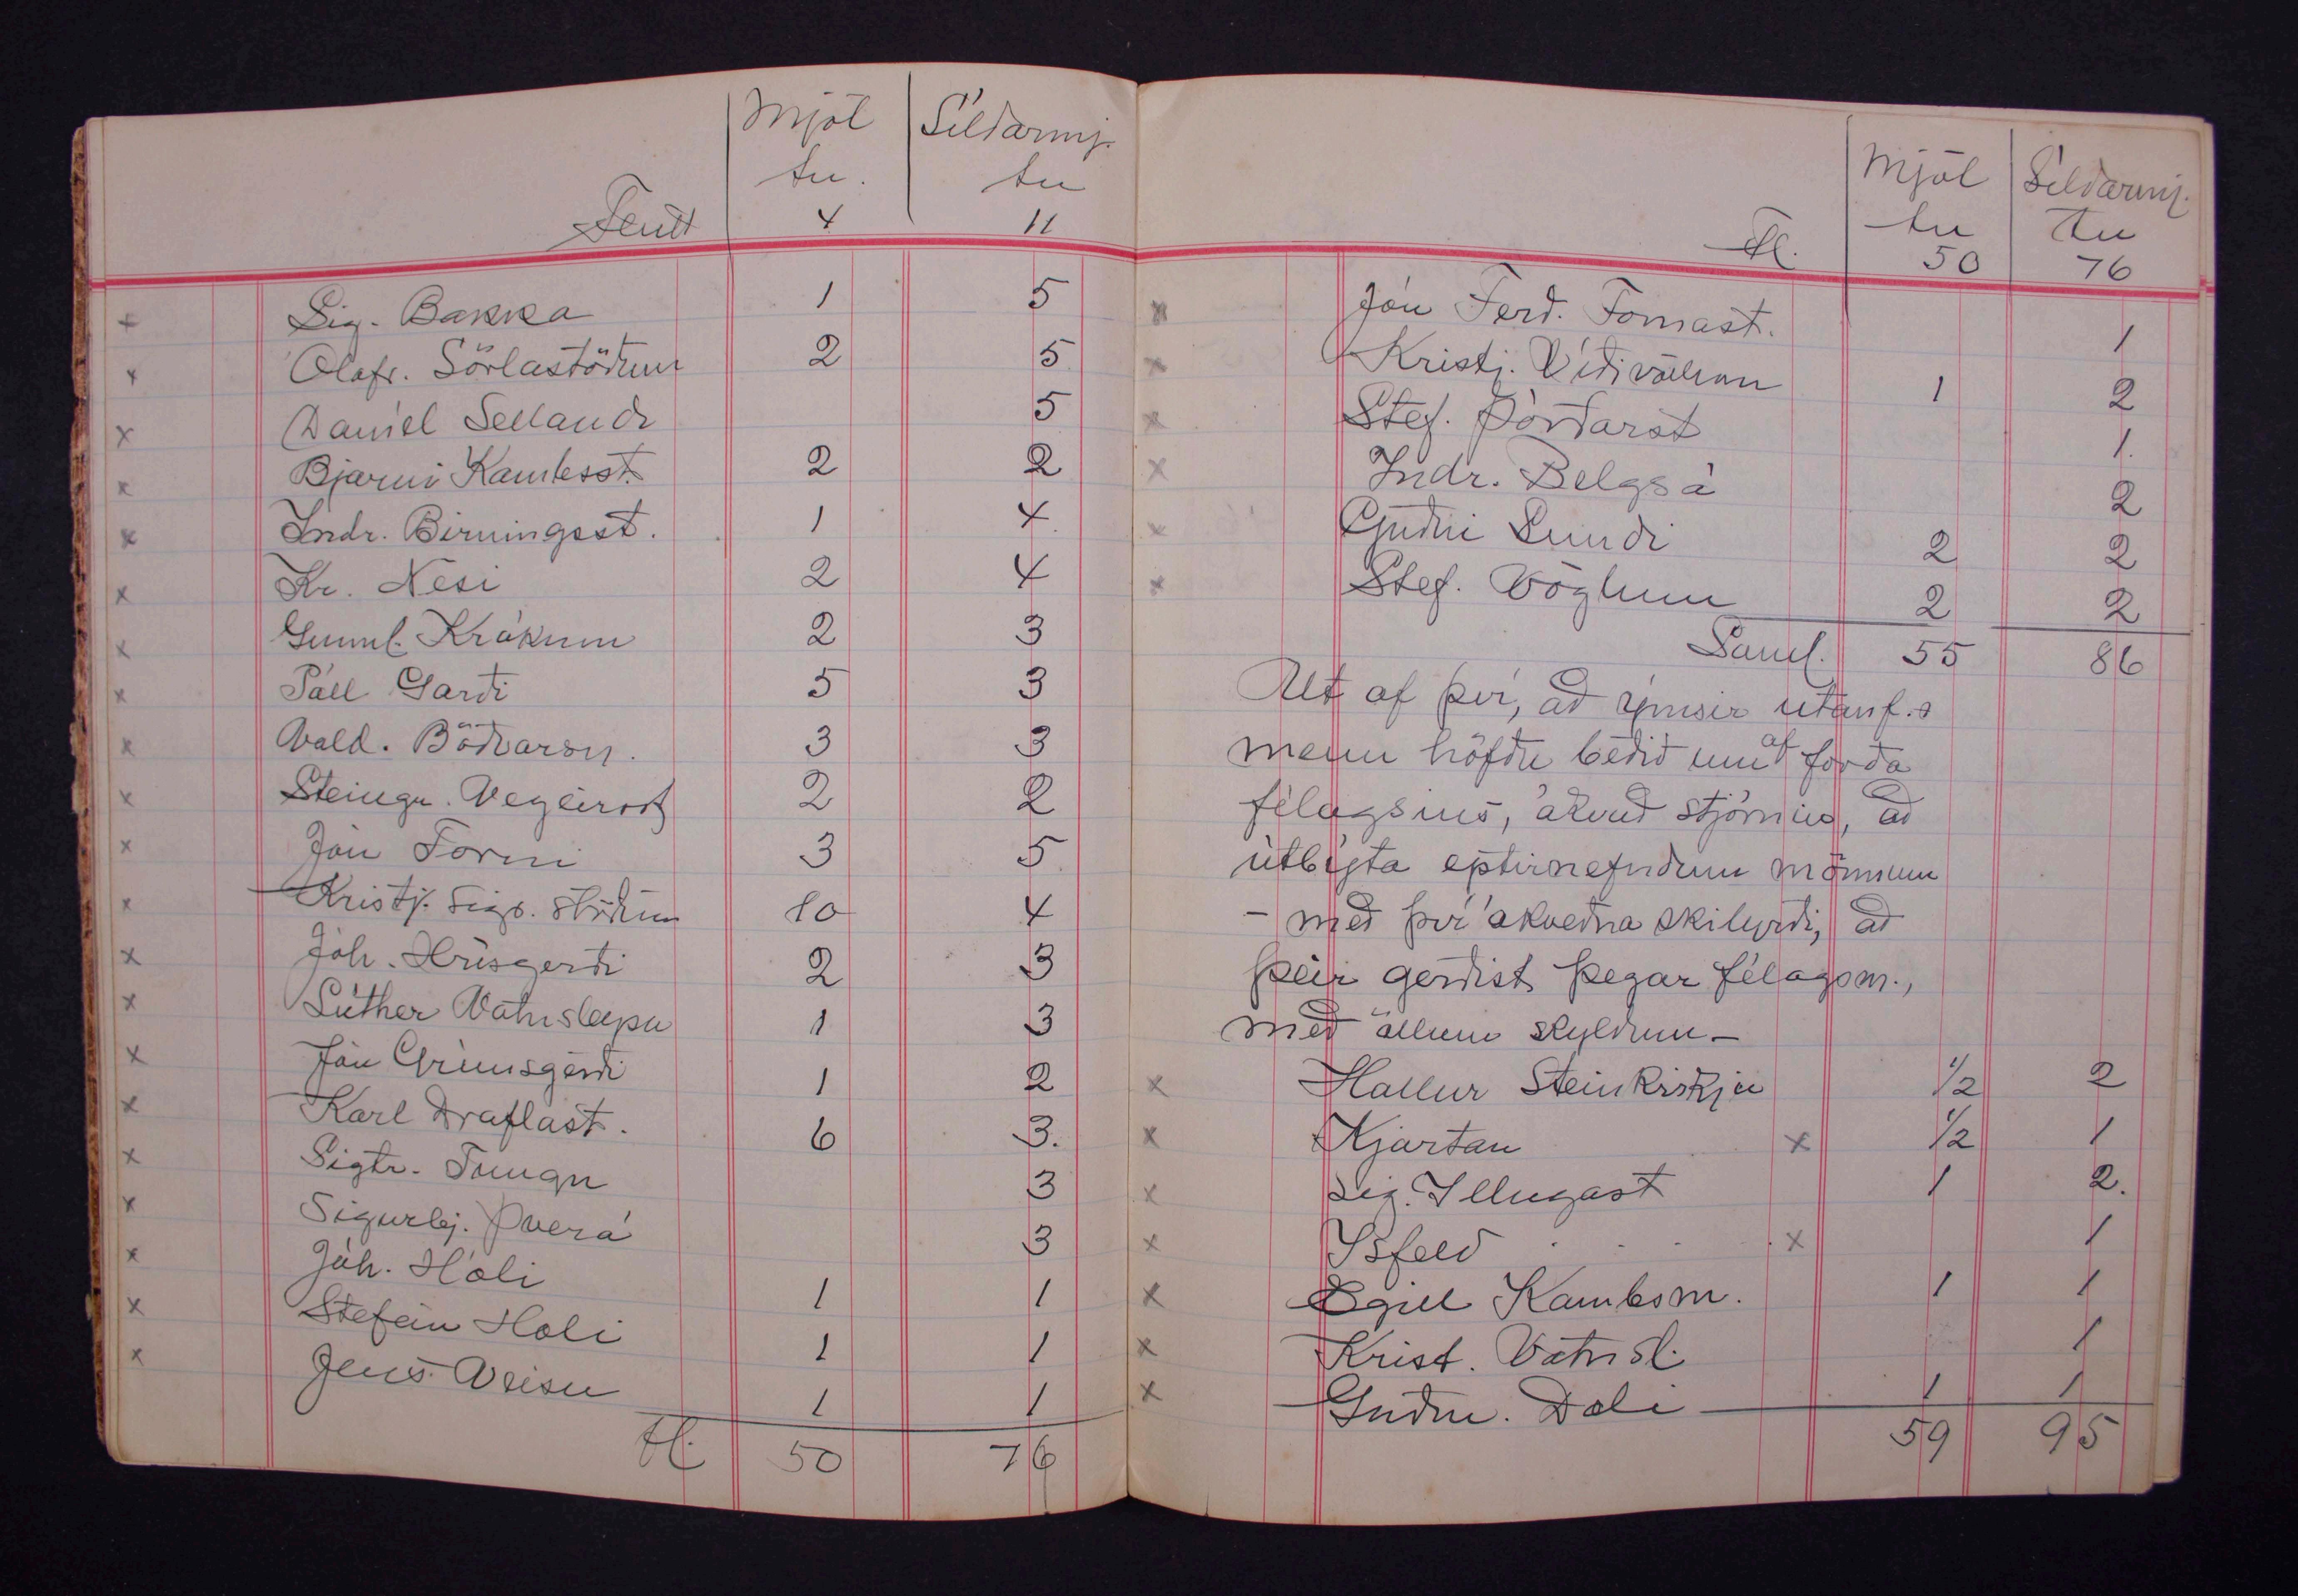 Mjöl Síldarmj.
tu. tu
Flutt 4 11
x Sig. Bakka 1 5
x Ólafr. Sörlastöðum 2 5
x Daníel Sellandi 5
x Bjarni Kambsst. 2 2
x Indr. Birningsst. 1 4
x Kr. Nesi 2 4
x Gunnl. Krákum 2 3
x Páll Garði 5 3
x Vald. Böðvarsn. 3 3
x Steingr. Vegeirsst 2 2
x Jón Forni 3 5
x Kristj. Sigr.stöðum 10 4
x Jóh. Hrísgerði 2 3
x Lúther Vatnsleysu 1 3
x Jón Grímsgerði 1 2
x Karl Draflast. 6 3.
x Sigtr. Tungu 3
x Sigurbj. Þverá 3
x Jóh. Hóli 1 1
x Stefán Hóli 1 1
x Jens Veisu 1 1
Fl. 50 76
Mjöl Síldarmj.
tu tu
Fl. 50 76
x Jón Ferd. Fornast. 1
x Kristj. Víðivöllum 1 2
x Stef. Þórðarst 1.
x Indr. Belgsá 2
x Guðni Lundi 2 2
x Stef. Vöglum 2 2
Saml. 55 86
Alt af því, að ýmsir utanf.s
menn höfðu beðið um af forða
félagsins, ákvað stjórnin, að
útbýta eptirnefndum mönnum
- með því ákveðna skilyrði, að
þeir gerðist þegar félagsm.,
með öllum skyldum -
x Hallur Steinkirkju 1/2 2
x Kjartan x 1/2 1
x Sig. Illugast 1 2.
x Ísfeld . . . x 1
x Egill Kambsm. 1 1
x Krist. Vatnsl. 1
x Guðm. Dæli 1 1
59 95